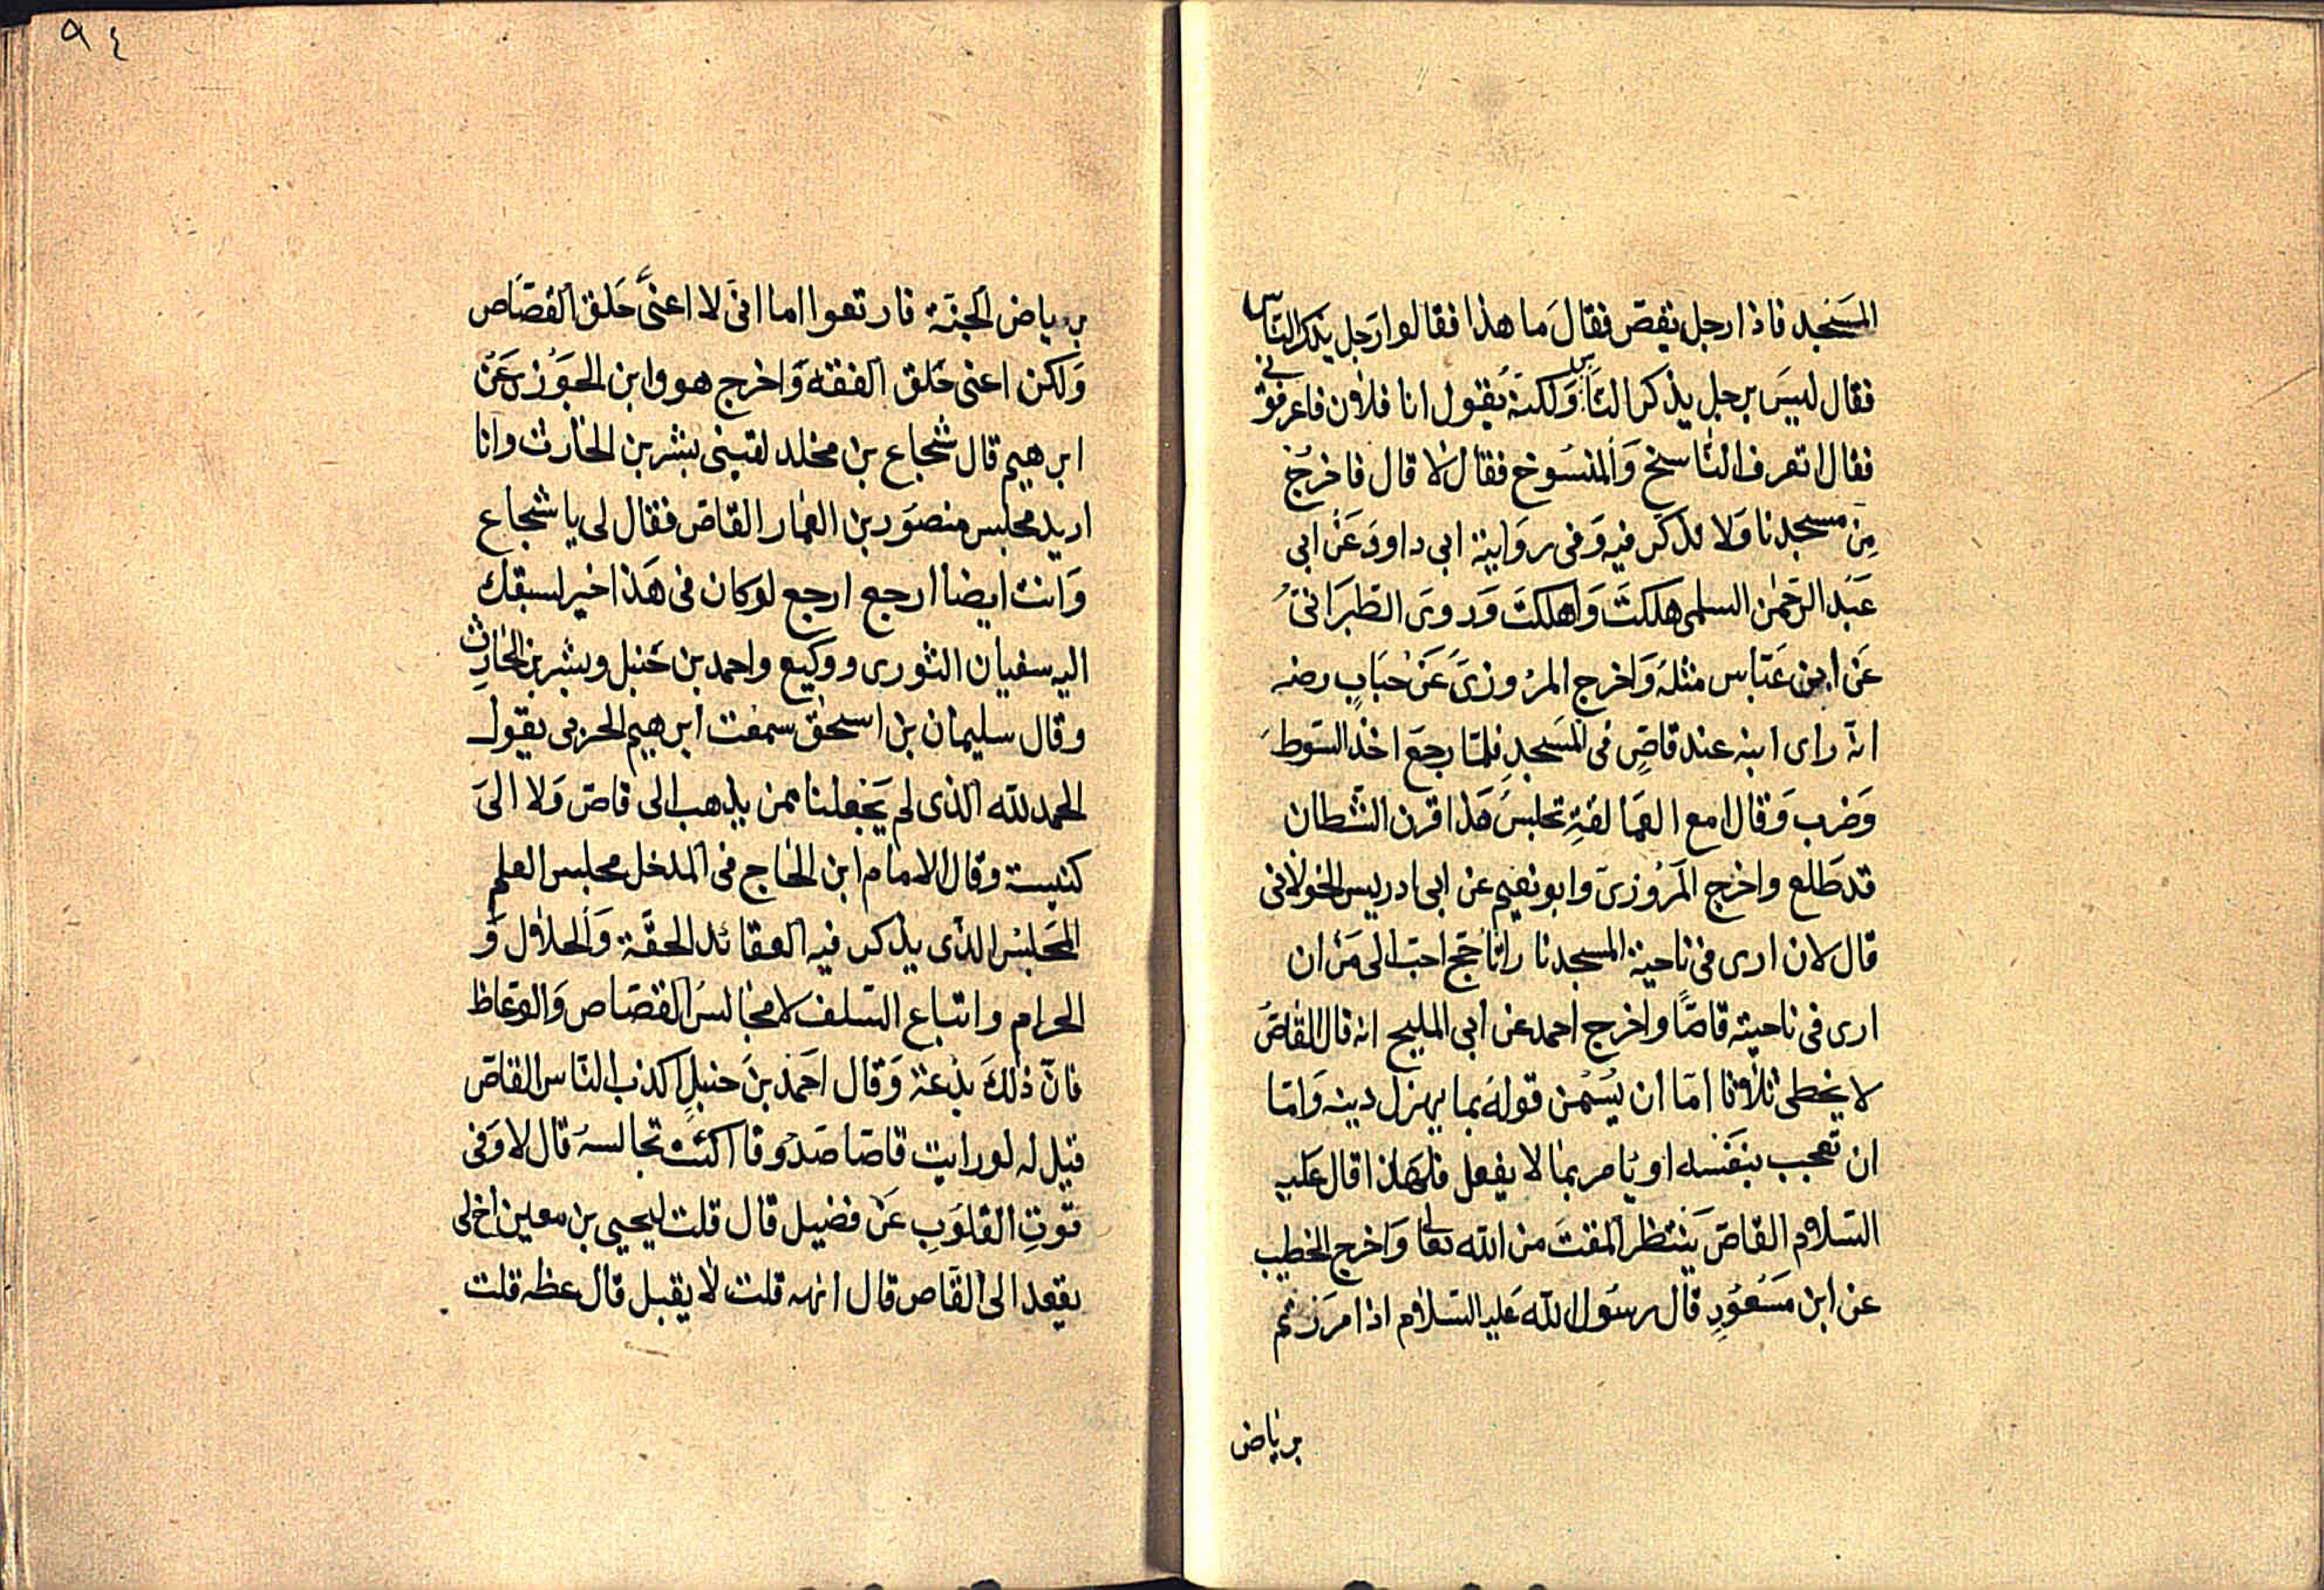 المسجد فاذا رجل يقص فقال ما هذا فقالوا رجل يذكر الناس
فقال ليس برجل يذكر الناس ولكنه يقول انا فلان فاعرفونى
فقال اتعرف الناسخ والمنسوخ فقال لا قال فاخرج
من مسجدنا ولا تذكر فيه وفى رواية ابى داود عن ابى
عبد الرحمن السلمى هلكت واهلكت وروى الطبرانى
عن ابن عباس مثله واخرج المروزى عن خباب رضه
انه راى ابنه عند قاص فى المسجد فلما رجع اخذ السوط
وضرب وقال امع العمالقة تجلس هذا قرن الشطان
قد طلع واخرج المروزى وابو نعيم عن ابى ادريس الخولانى
قال لان ارى فى ناحية المسجد نارا تاجج احب الى من ان
ارى فى ناحيته قاصا واخرج احمد عن ابى المليح انه قال القاص
لا يخطى ثلاثا اما ان يسمن قوله بما يهزل دينه واما
ان تعجب بنفسه او يامر بما لا يفعل فلهذا قال عليه
السلام القاص ينتظر المقت من الله تعالى واخرج الخطيب
عن ابن مسعود قال رسول الله عليه السلام اذا مررتم
برياض
٩٤
برياض الجنة فارتعوا اما انى لا اعنى حلق القصاص
ولكن اعنى حلق الفقه واخرج هو وابن الجوزى عن
ابرهيم قال شجاع بن مخلد لقينى بشر بن الحارث وانا
اريد مجلس منصور بن العمار القاص فقال لى يا شجاع
وانت ايضا ارجع ارجع لو كان فى هذا خير لسبقك
اليه سفيان الثورى ووكيع واحمد بن حنبل وبشر بن الحارث
وقال سليمان بن اسحق سمعت ابرهيم الحربى يقول
الحمد لله الذى لم يجعلنا ممن يذهب الى قاص ولا الى
كنيسة وقال الامام ابن الحاج فى المدخل مجلس العلم
المجلس الذى يذكر فيه العقائد الحقة والحلال و
الحرام واتباع السلف لا مجالس القصاص والوعاظ
فان ذلك بدعة وقال احمد بن حنبل اكذب الناس القاص
قيل له لو رايت قاصا صدوقا اكنت تجالسه قال لا وفى
قوت القلوب عن فضيل قال قلت ليحيى بن معين اخ لى
يقعد الى القاص قال انهه قلت لا يقبل قال عظه قلت